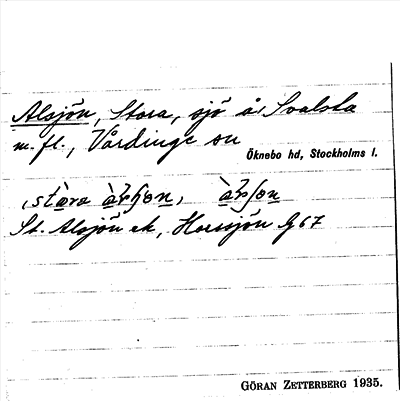 Alsjön, Stora, sjö å Svalsta
m.fl., Vårdinge sn
Öknebo hd, Stockholms l.
St. Alsjön ek, Horssjön G 67
GÖRAN ZETTERBERG 1935.